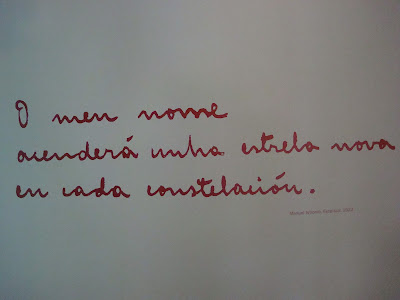 O meu nome
acenderá unha estrela nova
en cada constelación.
Manuel Antonio